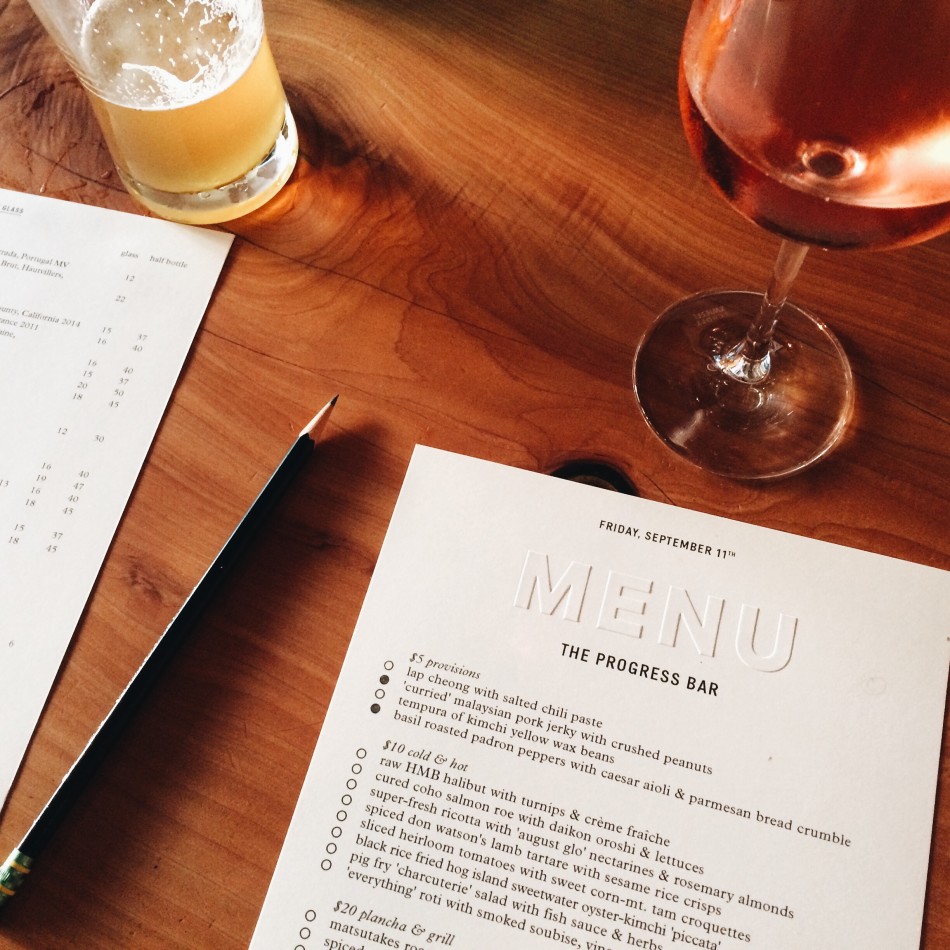 GLASS
glass half bottle
rada, Portugal MV 12
Brut, Hautvillers, 22
unty, California 2014 15 37
rance 2011 16 40
16 40
15 37
20 50
18 45
12 30
16 40
19 47
13 16 40
18 45
15 37
18 45
6
FRIDAY, SEPTEMBER 11TH
MENU
THE PROGRESS BAR
$5 provisions
lap cheong with salted chili paste
'curried' malaysian pork jerky with crushed peanuts
tempura of kimchi yellow wax beans
basil roasted padron peppers with caesar aioli & parmesan bread crumble
$10 cold & hot
raw HMB halibut with turnips & crème fraîche
cured coho salmon roe with daikon oroshi & lettuces
super-fresh ricotta with 'august glo' nectarines & rosemary almonds
spiced don watson's lamb tartare with sesame rice crisps
sliced heirloom tomatoes with sweet corn-mt. tam croquettes
black rice fried hog island sweetwater oyster-kimchi 'piccata'
pig fry 'charcuterie' salad with fish sauce & herbs
'everything' roti with smoked soubise,
$20 plancha & grill
matsutakes
spiced